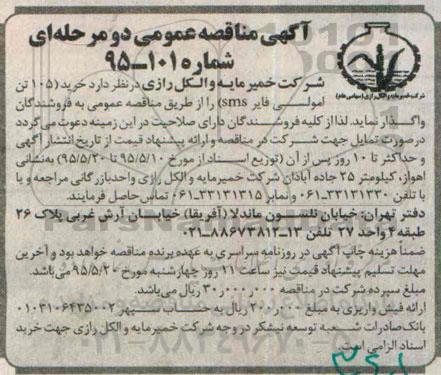 آگهی مناقصه عمومی دو مرحله‌ای
شماره ۱۰۱_۹۵
شرکت خمیر مایه و الکل رازی (سهامی عام)
شرکت خمیر مایه و الکل رازی درنظر دارد خرید (۱۰۵ تن
امولسی فایر sms) را از طریق مناقصه عمومی به فروشندگان
واگذار نماید. لذا از کلیه فروشندگان دارای صلاحیت در این زمینه دعوت می‌گردد
در صورت تمایل جهت شرکت در مناقصه و ارائه پیشنهاد قیمت از تاریخ انتشار آگهی
و حداکثر تا ۱۰ روز پس از آن (توزیع اسناد از مورخ ۹۵/۵/۱۰ تا ۹۵/۵/۲۰) به‌نشانی
اهواز، کیلومتر ۲۵ جاده آبادان شرکت خمیر مایه و الکل رازی واحد بازرگانی مراجعه و یا
با تلفن ۳۳۱۲۱۳۳۰-۰۶۱ و نمابر ۳۳۱۳۱۳۱۵-۰۶۱ تماس حاصل فرمایند.
دفتر تهران: خیابان نلسون ماندلا (آفریقا) خیابان آرش غربی پلاک ۲۶
طبقه ۴ واحد ۲۷ تلفن ۱۳-۸۸۶۷۳۸۱۲-۰۲۱
ضمناً هزینه چاپ آگهی در روزنامه سراسری به عهده برنده مناقصه خواهد بود و آخرین
مهلت تسلیم پیشنهاد قیمت نیز ساعت ۱۱ روز چهارشنبه مورخ ۹۵/۵/۲۰ می‌باشد.
مبلغ سپرده شرکت در مناقصه ۳۰,۰۰۰,۰۰۰ ریال می‌باشد.
ارائه فیش واریزی به مبلغ ۲۰۰,۰۰۰ ریال به حساب سپهر ۰۱۰۳۱۰۶۴۳۵۰۰۲
بانک صادرات شعبه توسعه نیشکر در وجه شرکت خمیر مایه و الکل رازی جهت خرید
اسناد الزامی است.